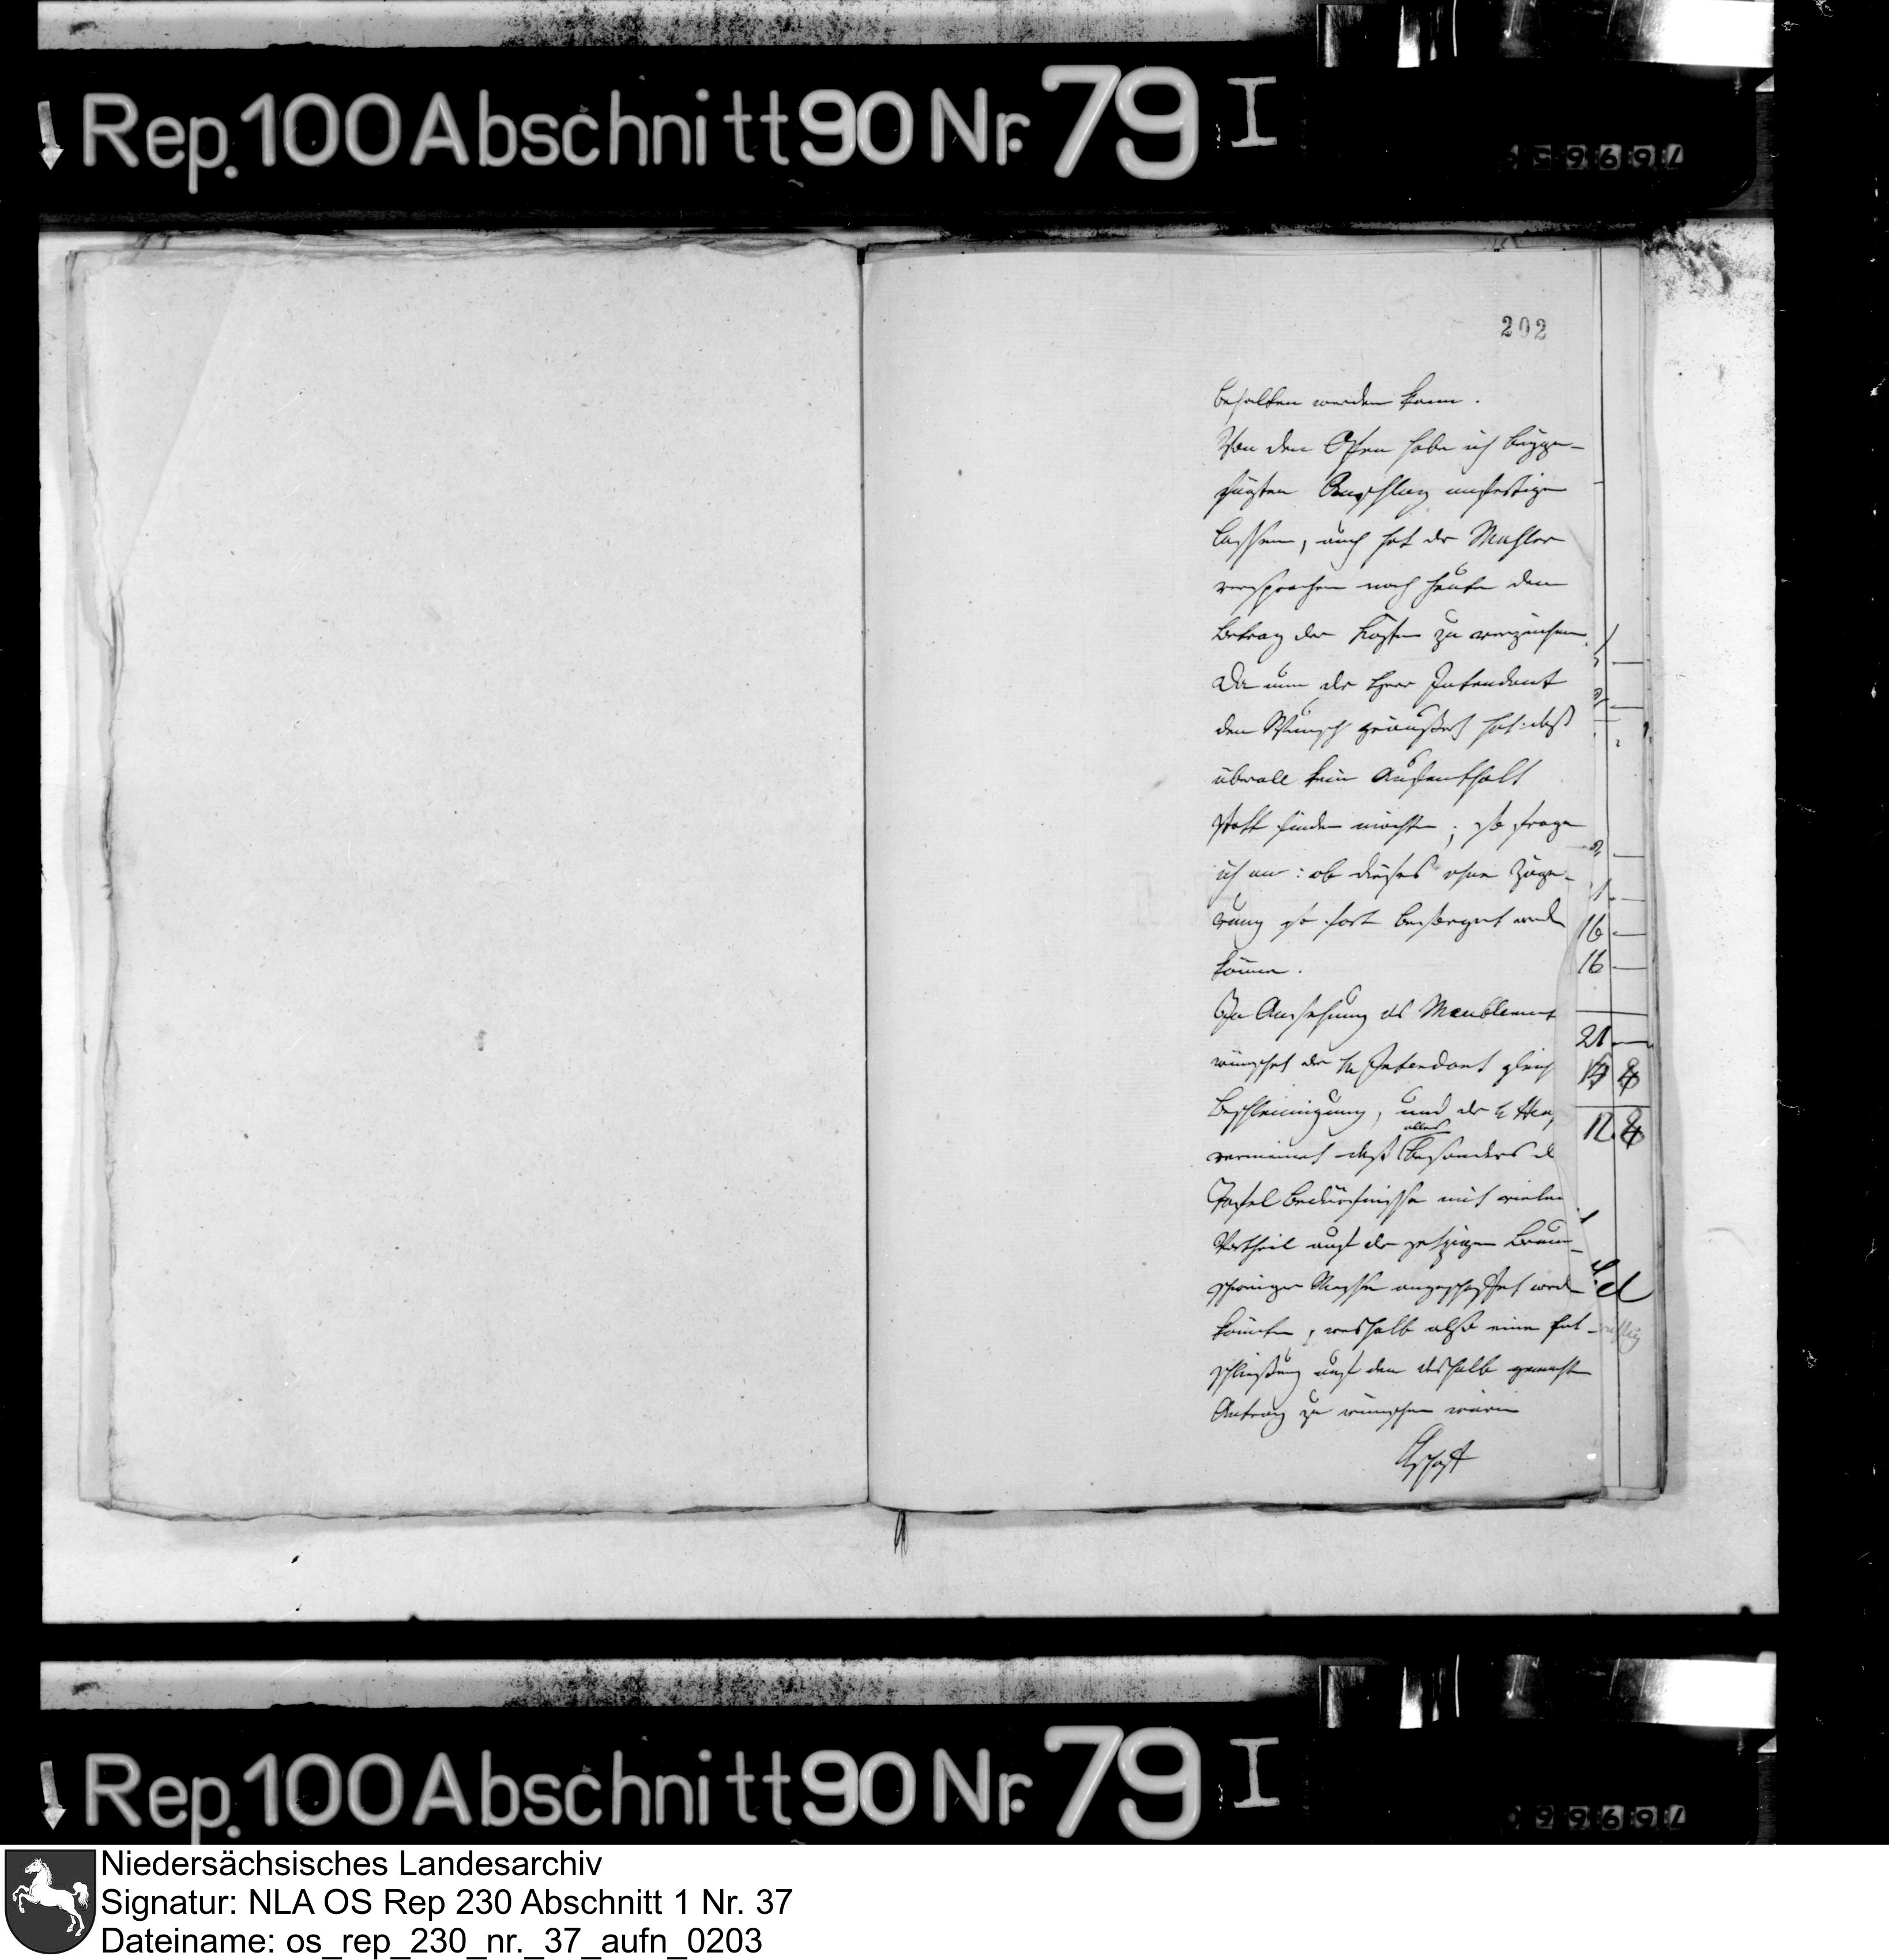 Rep. 100 Abschnitt 90 Nr. 79 I
202
behalten werden kann.
Von den Ofen habe ich beyge-
fügten Anschlag anfertigen
lassen, auch hat der Mahler
versprochen noch heute den
Betrag der Kosten zu
Da nun der Herr Intendant
den Wunsch geäußert hat daß
überall kein Aufenthalt
statt finden möchte; so frage
ich an: ob dieses ohne Zöge-
rung so fort besorget werden
können.
In Ansehung des Meublement
wünschet der H Intendant gleich
Beschleunigung, und der H
vermeinet daß alles besonders d
Tafel Bedürfnisse mit vielen
Vortheil auf der jetzigen Braun-
schweiger Messe angeschaffet werden
könnten, weshalb also eine Ent-
schließung auf den deshalb gemachten
Antrag zu wünschen wäre
16
16
21
12
Rep. 100 Abschnitt 90 Nr. 79 I
Niedersächsisches Landesarchiv
Signatur: NLA OS Rep 230 Abschnitt 1 Nr. 37
Dateiname: os_rep_230_nr._37_aufn_0203